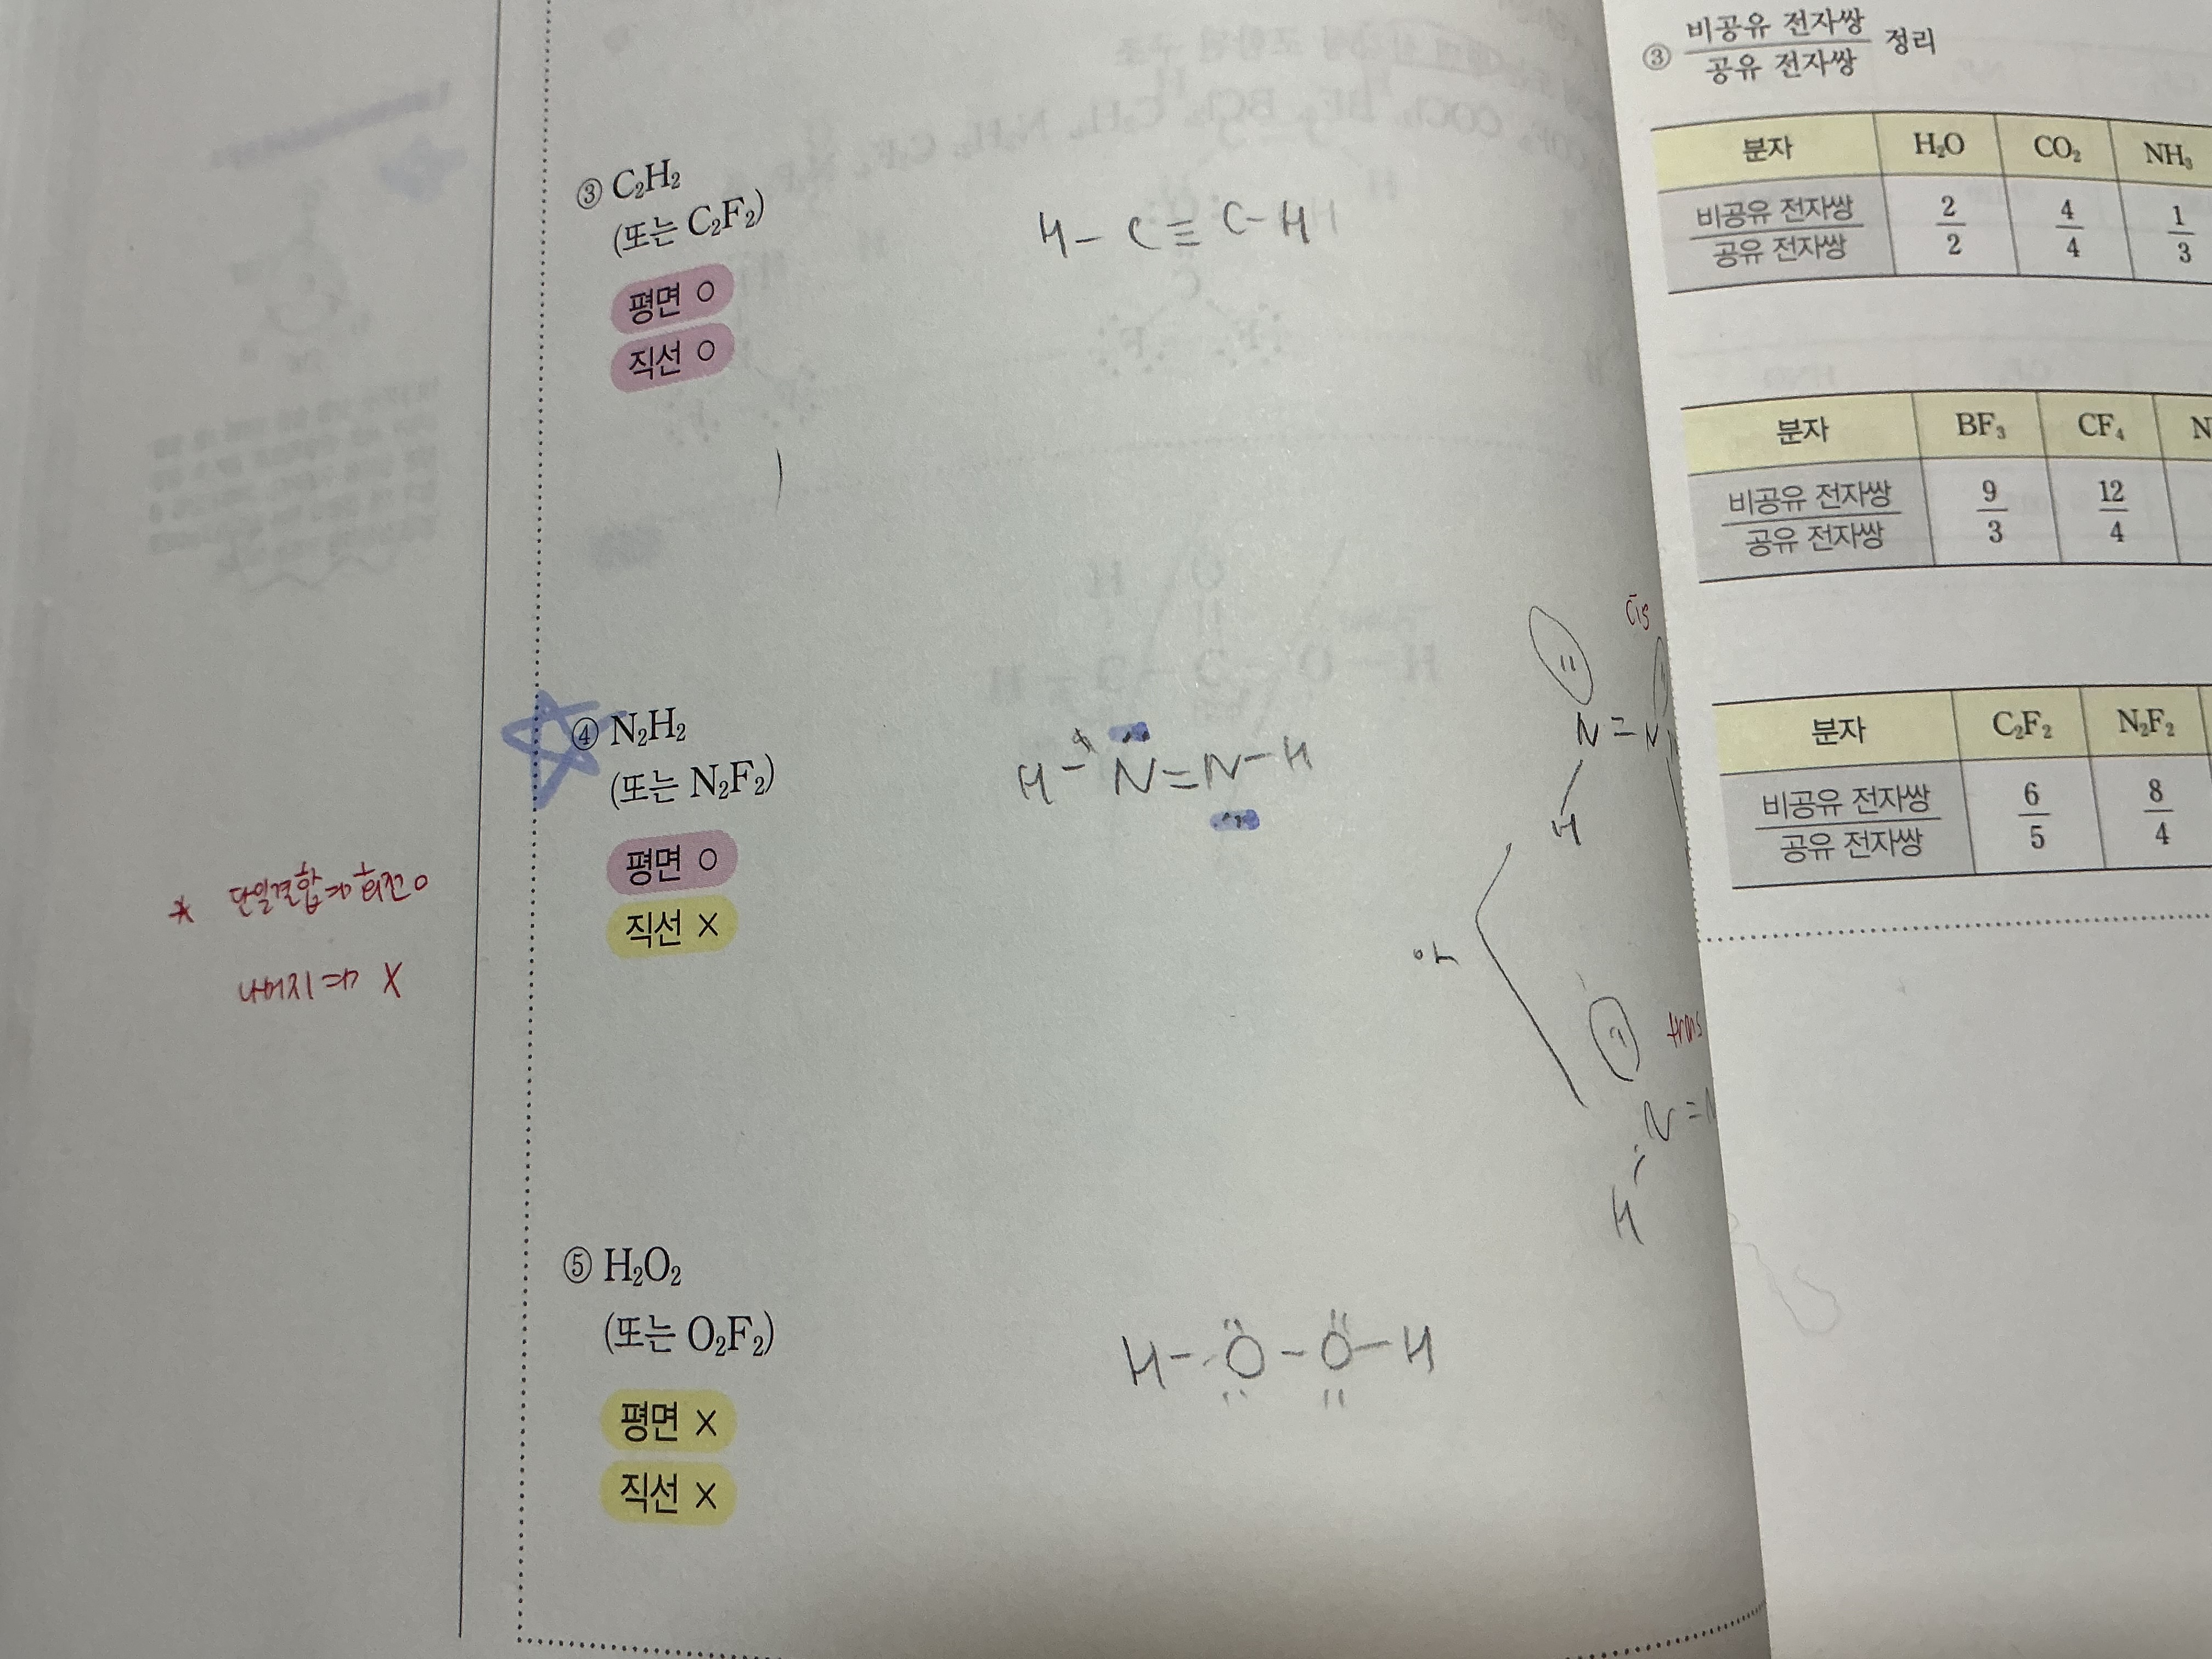 ③ C₂H₂
(또는 C₂F₂)
평면 ○
직선 ○
H - C ≡ C - H
④ N₂H₂
(또는 N₂F₂)
평면 ○
직선 ×
H - N = N - H
cis
N = N
H
or
N = N
H
* 단일결합 => 회전 ○
나머지 => X
⑤ H₂O₂
(또는 O₂F₂)
평면 ×
직선 ×
H - O - O - H
③ 비공유 전자쌍 / 공유 전자쌍 정리
분자 H₂O CO₂ NH₃
비공유 전자쌍 / 공유 전자쌍 2/2 4/4 1/3
분자 BF₃ CF₄ N
비공유 전자쌍 / 공유 전자쌍 9/3 12/4
분자 C₂F₂ N₂F₂
비공유 전자쌍 / 공유 전자쌍 6/5 8/4